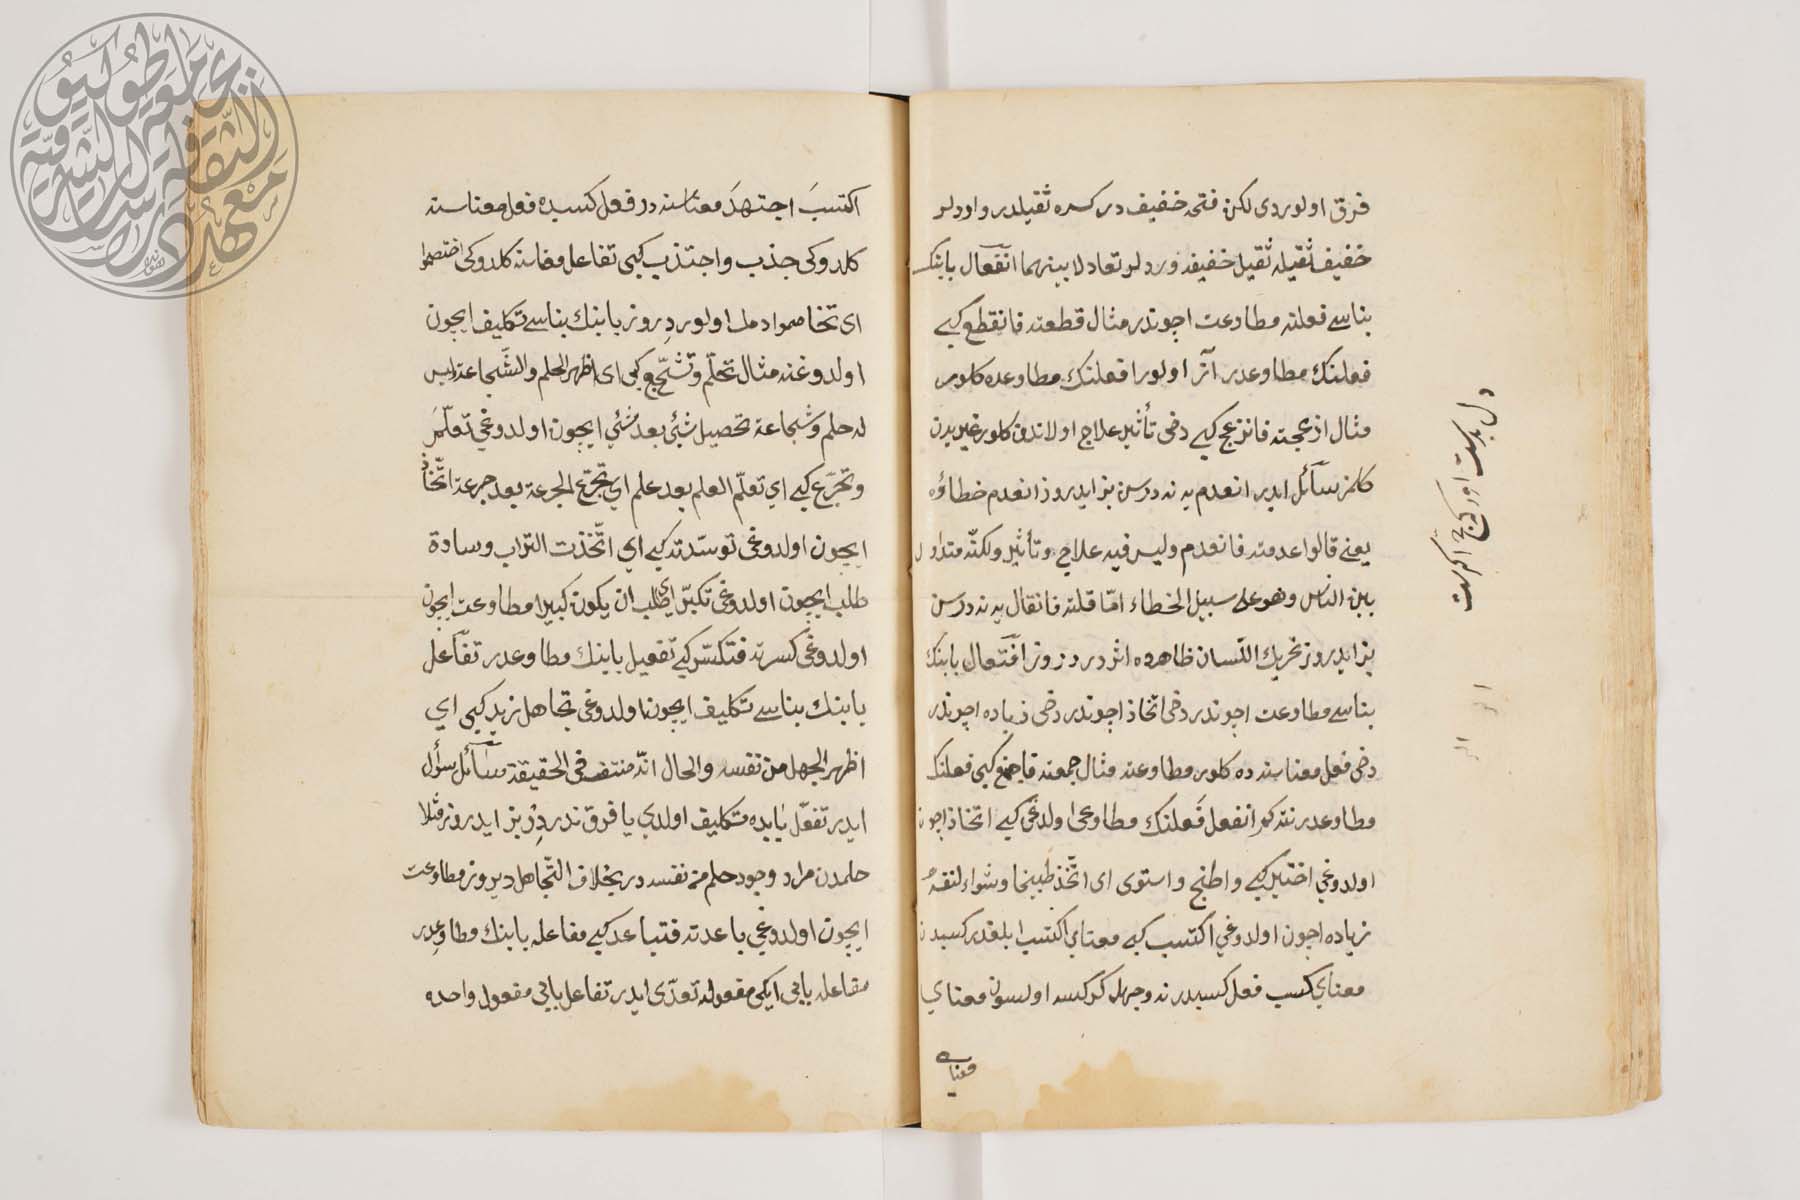 فرق اولوردی لکن فتحه خفیف در کسره ثقیلدر واودلر
خفیف ثقیله ثقیل خفیفه ویردلر تعادلا بینهما انفعال بابنك
بناسی فعلته مطاوعت اچوندر مثال قطعته فانقطع کبی
فعلنك مطاوعدر آنز اولور افعلنك مطاوعده کلور
مثال ازعجته فانزعج کبی دخی تأثیر علاج اولاندن کلور غیریدن
کلمز سائل ایدر انعدم یه نه درسن بز ایدروز انعدم خطاؤه
یعنی قالوا عدمته فانعدم ولیس فیه علاج وتأثیر ولکنّه متداول
بین الناس وهو علی سبیل الخطاء امّا قلته فانقال یه نه درسن
بز ایدروز تحریك اللسان ظاهرده اثردر دروز افتعال بابنك
بناسی مطاوعت اچوندر دخی اتخاذ اچوندر دخی زیاده اچوندر
دخی فعل معناسنده کلور مطاوعته مثال جمعته فاجتمع کبی فعلنك
مطاوعدر نته کم انفعل فعلنك مطاوعی اولدغی کبی اتخاذ اچون
اولدوغی اختیر کبی واطبخ واستوی ای اتّخذ طبیخا وشواء لنفسه
زیاده اچون اولدوغی اکتسب کبی معنای اکتسب ابلغدر کسبدن
معنای کسب فعل کسبدر نه وجهله کرکسه اولسون معنای
معنای
اکتسبَ اجتهدَ معناسنه در فعل کسبده فعل معناسنه
کلدوکی جذب واجتذب کبی تفاعل معناسنه کلدوکی اختصموا
ای تخاصموا دمك اولور دروز بابنك بناسی تکلیف ایچون
اولدوغنه مثال تحلّم وتشجّع کبی ای اظهر الحلم والشّجاعة ولیس
له حلم وشجاعة تحصیل شئ بعد شئ ایچون اولدوغی تعلّمَ
وتجرّع کبی ای تعلّم العلم بعد علم ای تجرّع الجرعة بعد جرعة اتّخاذ
ایچون اولدوغی توسّدته کبی ای اتّخذت التراب وسادة
طلب ایچون اولدوغی تکبّر ای طلب ان یکون کبیرا مطاوعت ایچون
اولدوغی کسرته فتکسّر کبی تفعیل بابنك مطاوعدر تفاعل
بابنك بناسی تکلیف ایچون اولدوغی تجاهل زید کبی ای
اظهر الجهل من نفسه والحال انّه منتف فی الحقیقة سائل سؤال
ایدر تفعّل بابده تکلیف اولدی یا فرق ندردِر بز ایدروز مثلا
حلمدن مراد وجود حلم من نفسه در بخلاف التّجاهل دیروز مطاوعت
ایچون اولدوغی باعدته فتباعد کبی مفاعله بابنك مطاوعدر
مفاعله بابی ایکی مفعوله تعدّی ایدر تفاعل بابی مفعول واحده